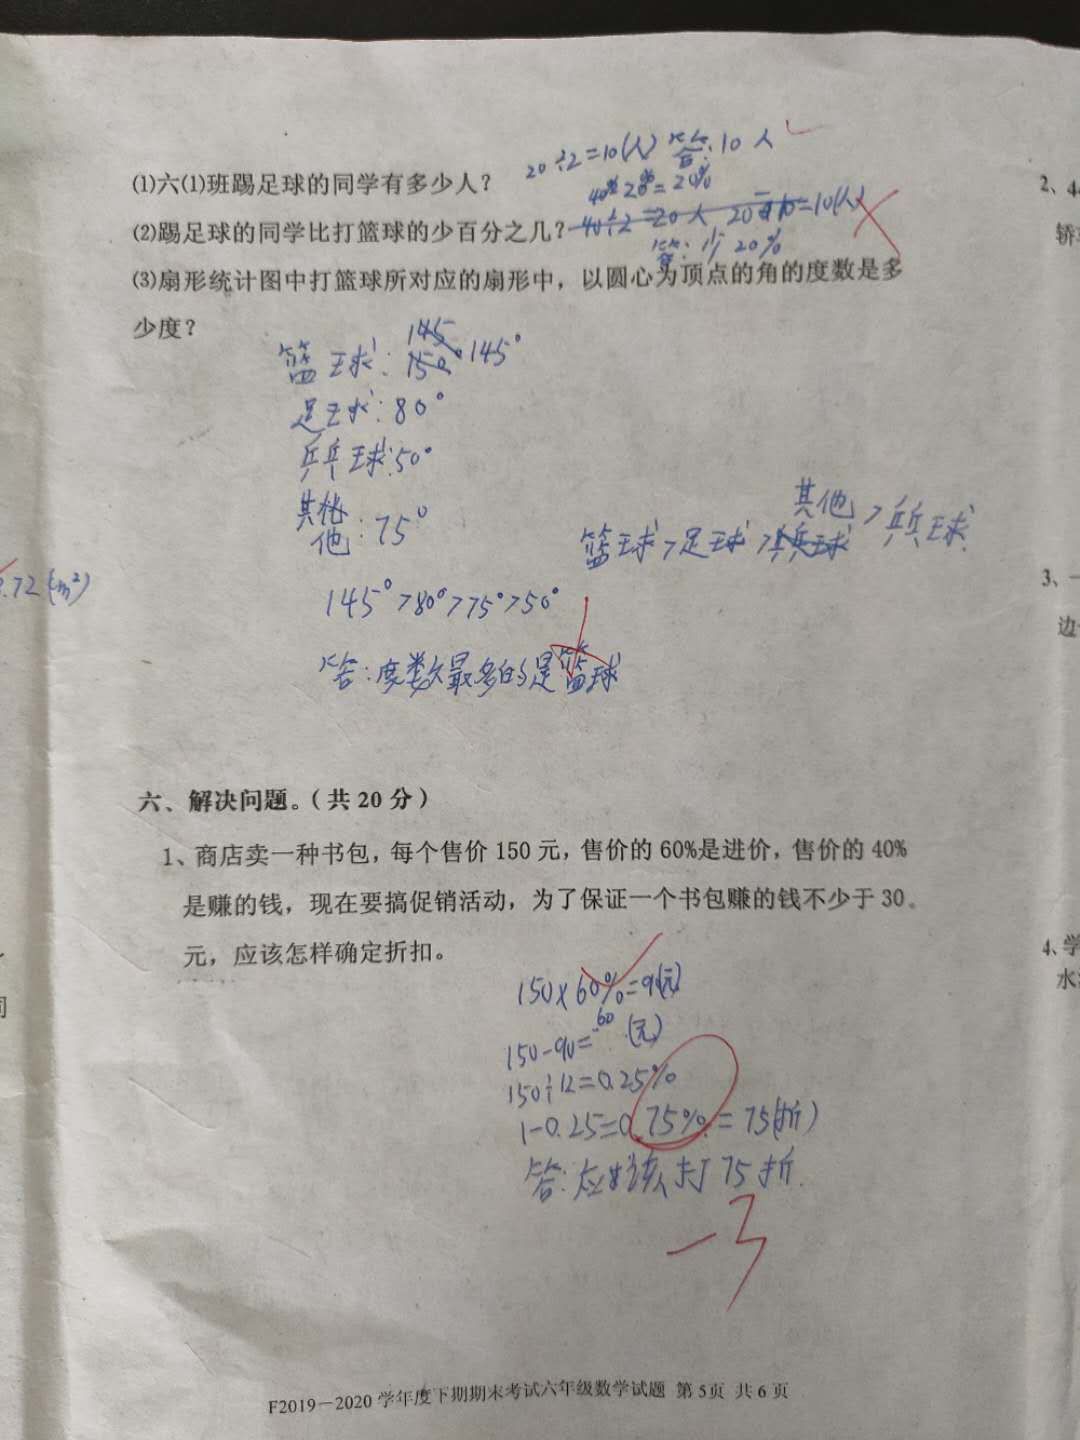 20÷2=10(人) 答:10人
(1)六(1)班踢足球的同学有多少人?
40% 20%=20%
(2)踢足球的同学比打篮球的少百分之几?
40÷2=20人 =10(人)
答:少20%
(3)扇形统计图中打篮球所对应的扇形中，以圆心为顶点的角的度数是多
少度?
145
篮球:150° 145°
足球:80°
乒乓球:50°
其他
他:75°
其他>乒乓球
篮球>足球>乒乓球
.72(m²)
145°>80°>75°>50°
答:度数最多的是篮球
六、解决问题。(共20分)
1、商店卖一种书包，每个售价150元，售价的60%是进价，售价的40%
是赚的钱，现在要搞促销活动，为了保证一个书包赚的钱不少于30
元，应该怎样确定折扣。
150×60%=90(元)
150-90=60(元)
150÷12=0.25%
1-0.25=0.75%=75(折)
答:应该打75折.
-3
F2019－2020学年度下期期末考试六年级数学试题 第5页 共6页
2、4
轿
3、一
边
4、学
水